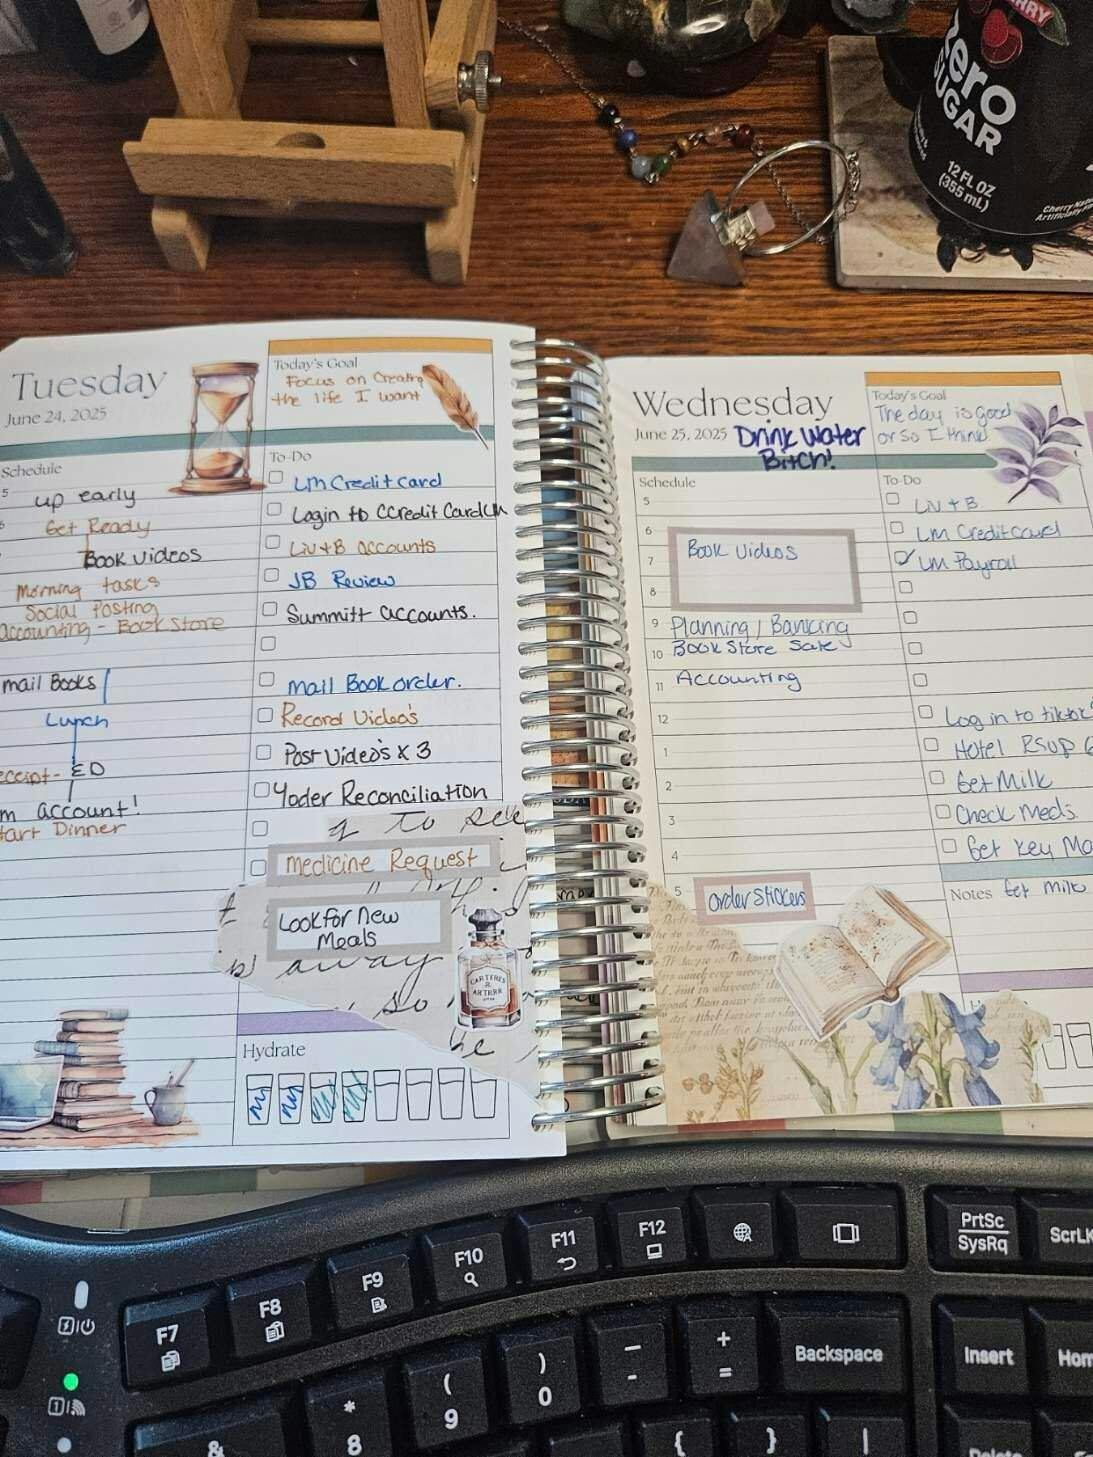 CHERRY
Zero
SUGAR
12 FL OZ
(355 mL)
Tuesday
June 24, 2025
Today's Goal
Focus on Creating
the life I want
Schedule
5 up early
6 Get Ready
Book Videos
Morning tasks
Social Posting
accounting - Book Store
mail Books
Lunch
ED
account!
Dinner
To-Do
LM Credit card
Login to CCredit Card LM
Liv + B accounts
JB Review
Summitt accounts.
Mail Book order.
Record Video's
Post Video's x 3
Yoder Reconciliation
medicine Request
Look for New
Meals
Hydrate
Wednesday
June 25, 2025
Drink Water
Bitch!
Today's Goal
The day is good
or so I think!
Schedule
5
6
7 Book Videos
8
9 Planning / Banking
10 Book Store Sale
11 Accounting
12
1
2
3
4
5 order stickers
To-Do
Liv + B
LM Credit card
LM Payroll
Log in to tiktok
Hotel RSVP
Get Milk
Check Meds.
Get Key
Notes Get milk
F7
F8
F9
F10
F11
F12
PrtSc
SysRq
ScrLK
Backspace
Insert
&
8
*
9
(
0
)
-
+
=
{
}
|